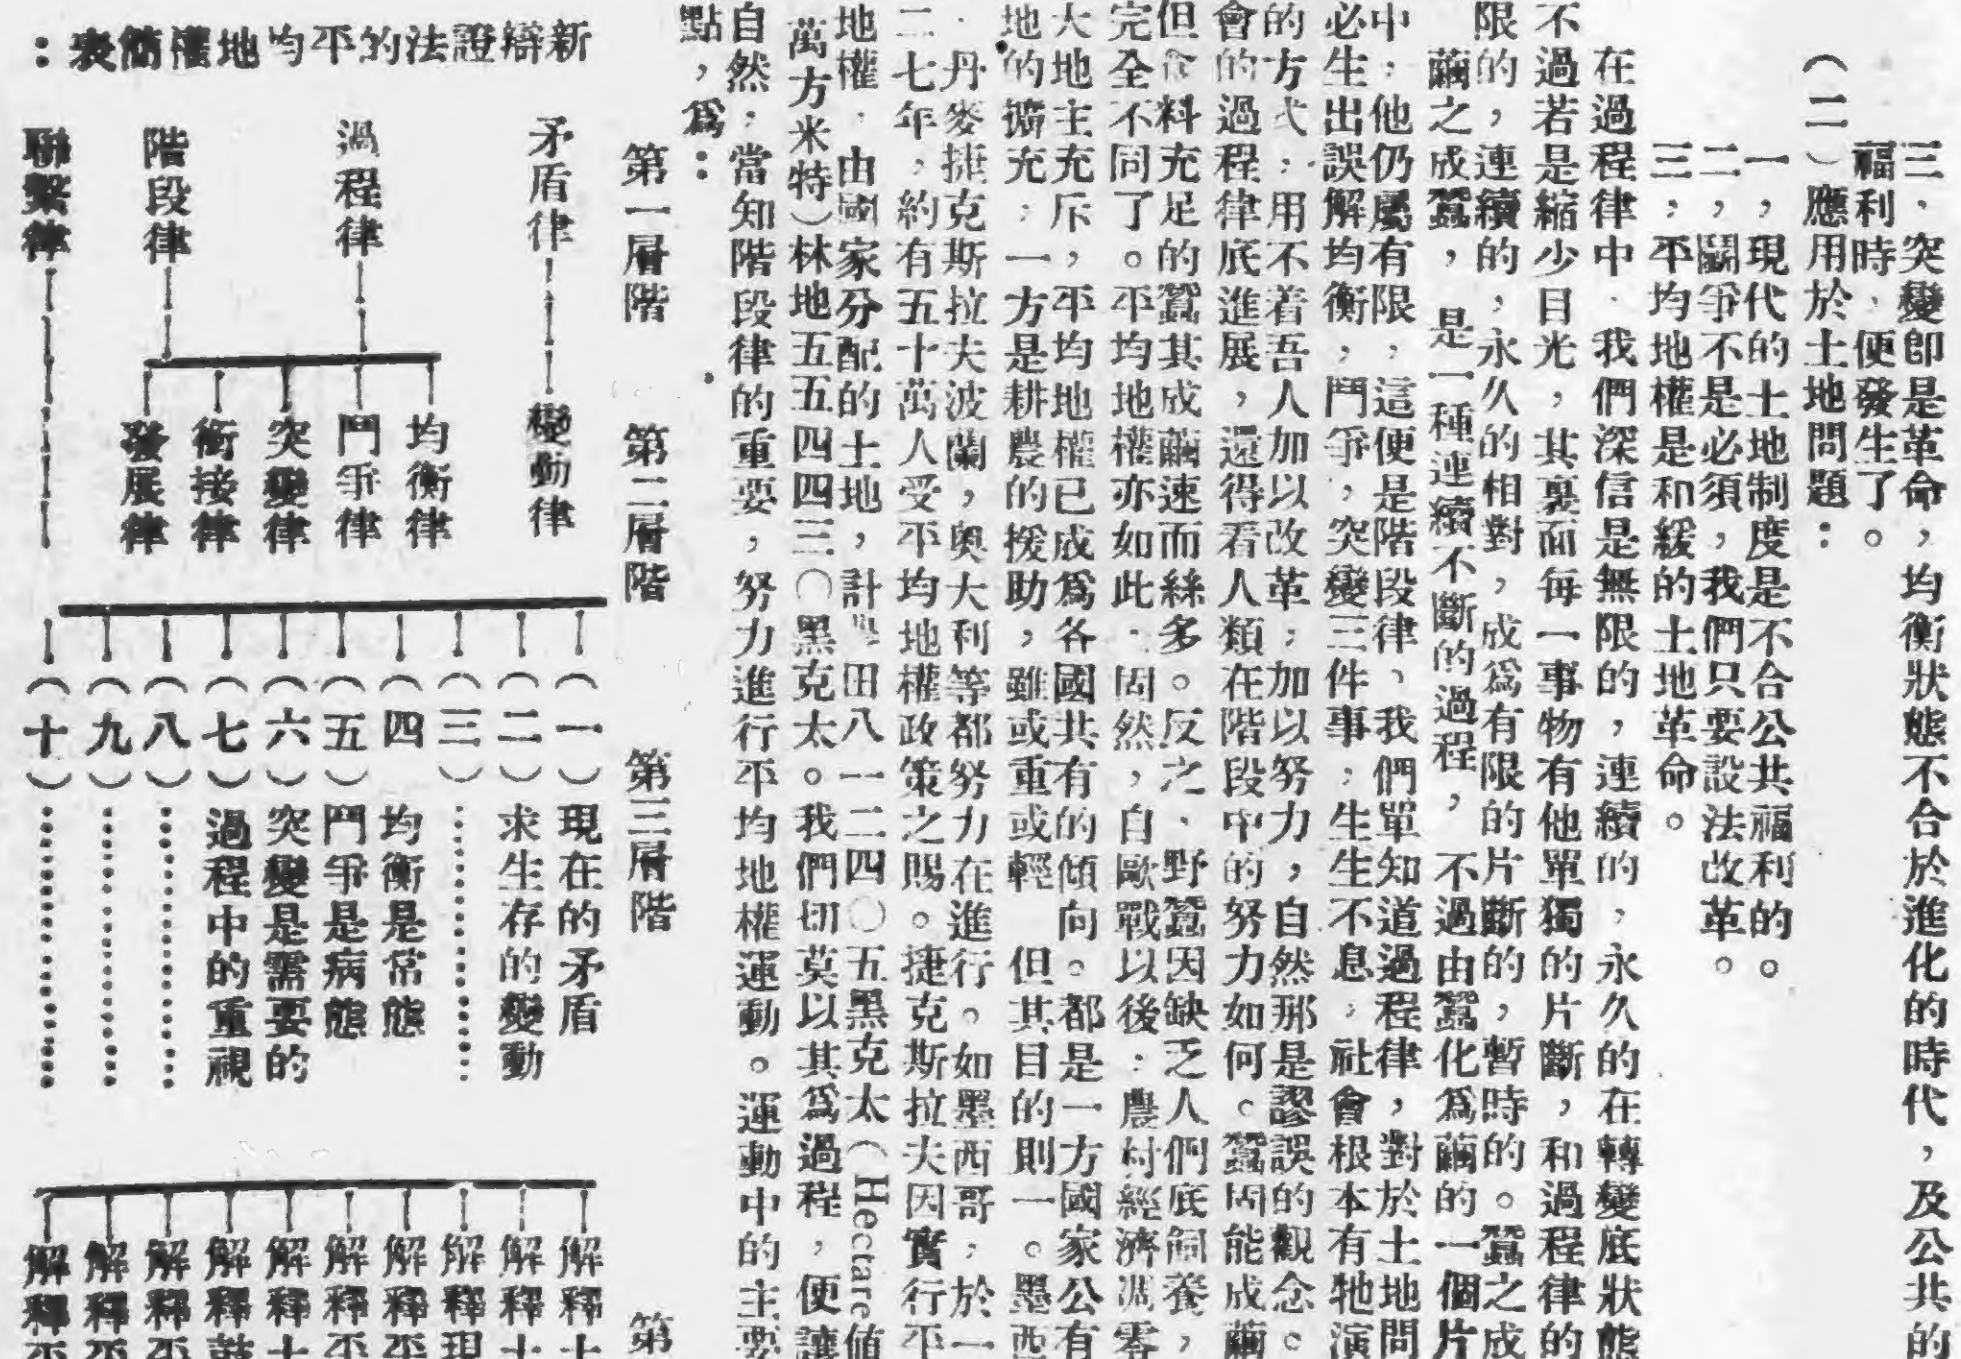 三、突變即是革命，均衡狀態不合於進化的時代，及公共的
福利時，便發生了。
（二）應用於土地問題：
一，現代的土地制度是不合公共福利的。
二，鬭爭不是必須，我們只要設法改革。
三，平均地權是和緩的土地革命。
在過程律中，我們深信是無限的，連續的，永久的在轉變底狀態
不過若是縮少目光，其裏面每一事物有他單獨的片斷，和過程律的
限的，連續的，永久的相對，成爲有限的片斷的，暫時的。蠶之成
繭之成蠶，是一種連續不斷的過程，不過由蠶化爲繭的一個片
中，他仍屬有限，這便是階段律、我們單知道過程律，對於土地問
必生出誤解均衡，鬥爭，突變三件事，生生不息，社會根本有牠演
的方式，用不着吾人加以改革，加以努力，自然那是謬誤的觀念。
會的過程律底進展，還得看人類在階段中的努力如何。蠶固能成繭
但食料充足的蠶其成繭速而絲多。反之、野蠶因缺乏人們底飼養，
完全不同了。平均地權亦如此，固然，自歐戰以後，農村經濟凋零
大地主充斥，平均地權已成爲各國共有的傾向。都是一方國家公有
地的擴充，一方是耕農的援助，雖或重或輕 但其目的則一。墨西
丹麥捷克斯拉夫波蘭，奥大利等都努力在進行。如墨西哥，於一
二七年，約有五十萬人受平均地權政策之賜。捷克斯拉夫因實行平
地權，由國家分配的土地，計 田八一二四〇五黑克太（Hectare値
萬方米特）林地五五四四三〇黑克太。我們切莫以其爲過程，便讓
自然，當知階段律的重要，努力進行平均地權運動。運動中的主要
點，爲：
第一層階 第二層階 第三層階 第
新辯證法的平均地權簡表：
矛盾律 變動律
過程律
階段律
聯繫律
均衡律
鬥爭律
突變律
銜接律
發展律
（一）現在的矛盾 解釋土
（二）求生存的變動 解釋土
（三）………… 解釋現
（四 均衡是常態 解釋平
（五）鬥爭是病態 解釋平
（六）突變是需要的 解釋土
（七）過程中的重視 解釋
（八）………… 解釋平
（九）………… 解釋平
（十）………… 解釋平